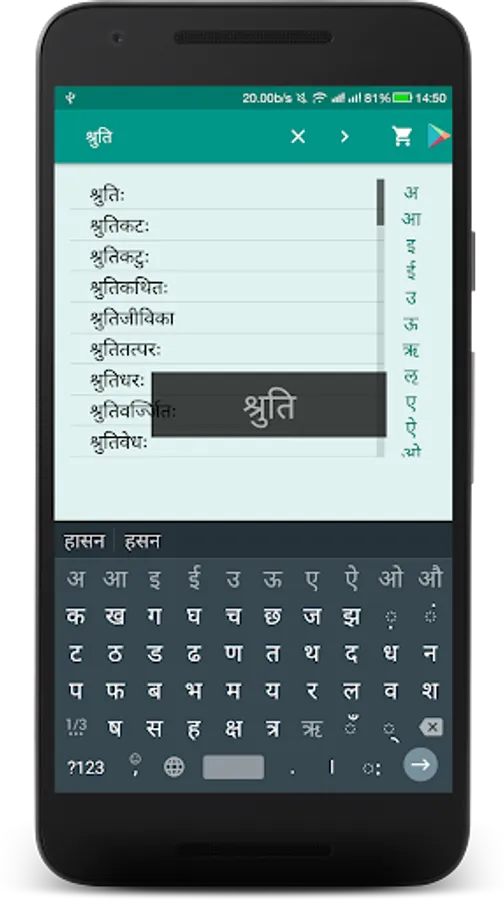 20.00b/s 81% 14:50
श्रुति
श्रुतिः
श्रुतिकटः
श्रुतिकटुः
श्रुतिकथितः
श्रुतिजीविका
श्रुतितत्परः
श्रुतिधरः
श्रुतिवर्ज्जितः
श्रुतिवेधः
श्रुति
अ
आ
इ
ई
उ
ऊ
ऋ
ऌ
ए
ऐ
ओ
हासन हसन
अ आ इ ई उ ऊ ए ऐ ओ औ
क ख ग घ च छ ज झ ़ ं
ट ठ ड ढ ण त थ द ध न
प फ ब भ म य र ल व श
1/3 ष स ह क्ष त्र ऋ ँ ્
?123 , . । ः